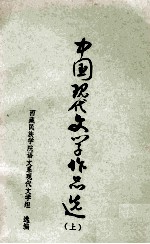 中国现代文学作品选
（上）
西藏民族学院语文系现代文学组 选编